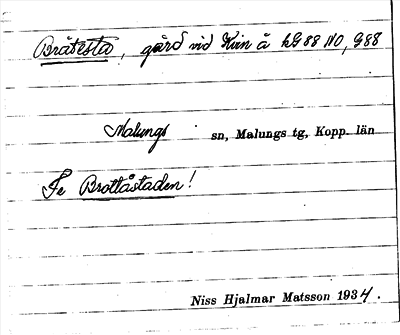 Bråtesta, gård vid Kvin å kG 88 NO, G88
Malungs sn, Malungs tg, Kopp. län
Se Brottåstaden!
Niss Hjalmar Matsson 1934.